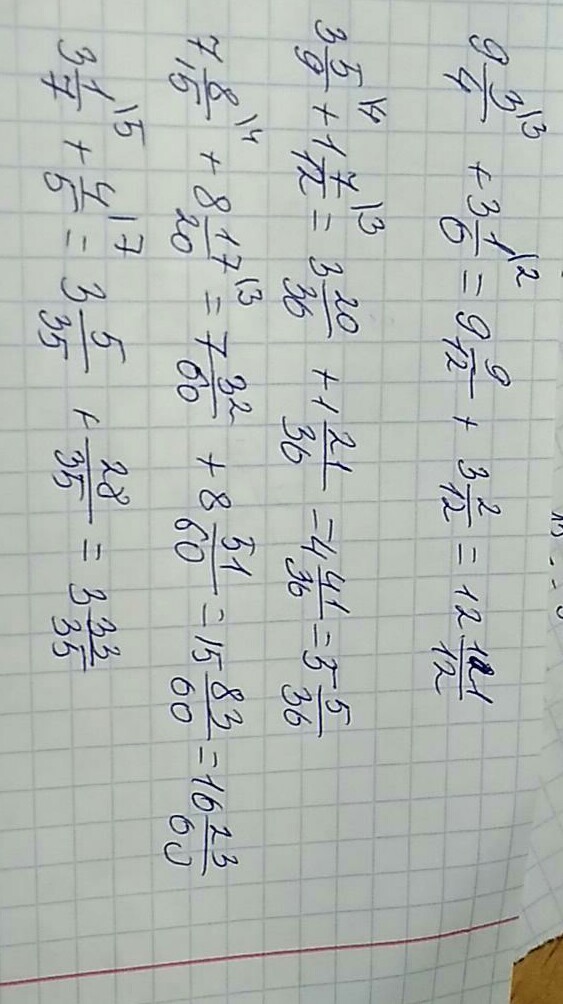 9 3/4 \3 + 3 1/6 \2 = 9 9/12 + 3 2/12 = 12 11/12
3 5/9 \4 + 1 7/12 \3 = 3 20/36 + 1 21/36 = 4 41/36 = 5 5/36
7 8/15 \4 + 8 17/20 \3 = 7 32/60 + 8 51/60 = 15 83/60 = 16 23/60
3 1/7 \5 + 4/5 \7 = 3 5/35 + 28/35 = 3 33/35